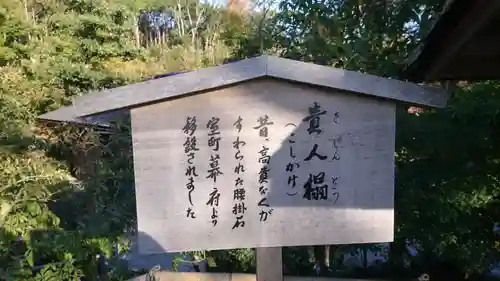 貴人榻
きじんとう
(こしかけ)
昔、高貴なくが
すわられた腰掛石
室町幕府より
移設されました